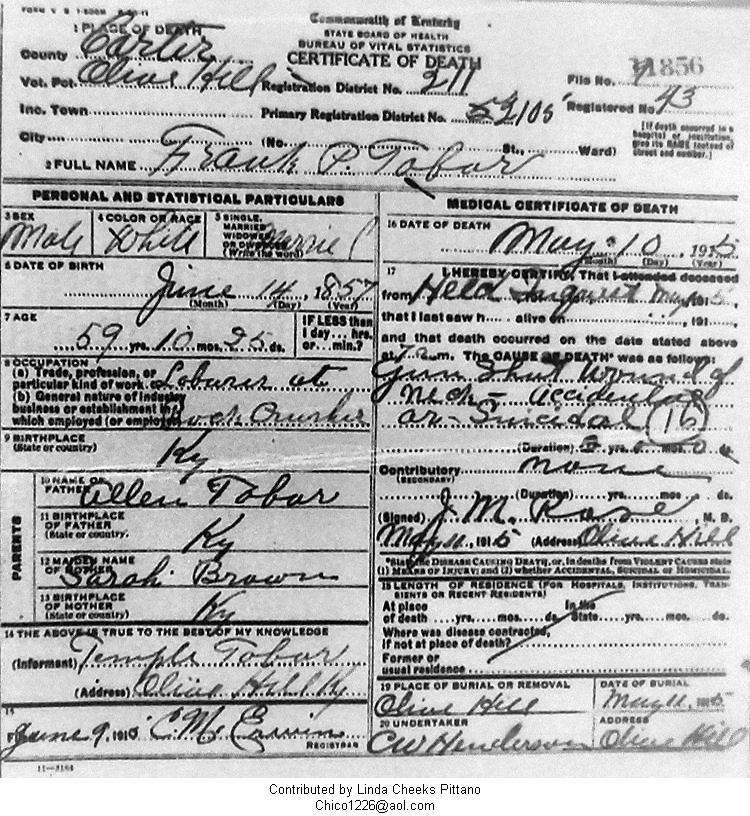 FORM V S 1-500M
Commonwealth of Kentucky
STATE BOARD OF HEALTH
BUREAU OF VITAL STATISTICS
CERTIFICATE OF DEATH
1 PLACE OF DEATH
County Carter
Vot. Pct. Olive Hill
Registration District No. 211
File No. 11856
Inc. Town
Primary Registration District No. 52105
Registered No. 43
City (No. St., Ward)
[If death occurred in a
hospital or institution,
give its NAME instead of
street and number.]
2 FULL NAME Frank P. Tobar
PERSONAL AND STATISTICAL PARTICULARS
3 SEX
Male
4 COLOR OR RACE
White
5 SINGLE,
MARRIED,
WIDOWED,
OR DIVORCED
(Write the word)
Married
6 DATE OF BIRTH
June 14, 1857
(Month) (Day) (Year)
7 AGE
59 yrs. 10 mos. 25 ds.
IF LESS than
1 day ... hrs.
or ... min.?
8 OCCUPATION
(a) Trade, profession, or
particular kind of work. Laborer at
(b) General nature of industry
business or establishment in
which employed (or employer) Rock Crusher
9 BIRTHPLACE
(State or country)
Ky.
PARENTS
10 NAME OF
FATHER
Allen Tobar
11 BIRTHPLACE
OF FATHER
(State or country)
Ky
12 MAIDEN NAME
OF MOTHER
Sarah Brown
13 BIRTHPLACE
OF MOTHER
(State or country)
Ky
14 THE ABOVE IS TRUE TO THE BEST OF MY KNOWLEDGE
(Informant) Temple Tobar
(Address) Olive Hill Ky
15
June 9, 1915 C M Erwin
REGISTRAR
11-3184
MEDICAL CERTIFICATE OF DEATH
16 DATE OF DEATH
May 10, 1915
(Month) (Day) (Year)
17 I HEREBY CERTIFY, That I attended deceased
from Held Inquest May 1915
that I last saw h... alive on ..., 191...,
and that death occurred on the date stated above
at m. The CAUSE OF DEATH* was as follows:
Gun Shut wound of
neck - Accidental
or - Suicidal (16)
(Duration) yrs. mos. ds.
Contributory none
(SECONDARY)
(Duration) yrs. mos. ds.
(Signed) J. M. Rose, M. D.
May 11, 1915 (Address) Olive Hill
*State the DISEASE CAUSING DEATH, or, in deaths from VIOLENT CAUSES state
(1) MEANS OF INJURY; and (2) whether ACCIDENTAL, SUICIDAL OR HOMICIDAL.
18 LENGTH OF RESIDENCE (FOR HOSPITALS, INSTITUTIONS, TRAN-
SIENTS OR RECENT RESIDENTS)
At place
of death ... yrs. ... mos. ... ds.
In the
State ... yrs. ... mos. ... ds.
Where was disease contracted,
if not at place of death?
Former or
usual residence
19 PLACE OF BURIAL OR REMOVAL
Olive Hill
DATE OF BURIAL
May 11, 1915
20 UNDERTAKER
CW Henderson
ADDRESS
Olive Hill
Contributed by Linda Cheeks Pittano
Chico1226@aol.com